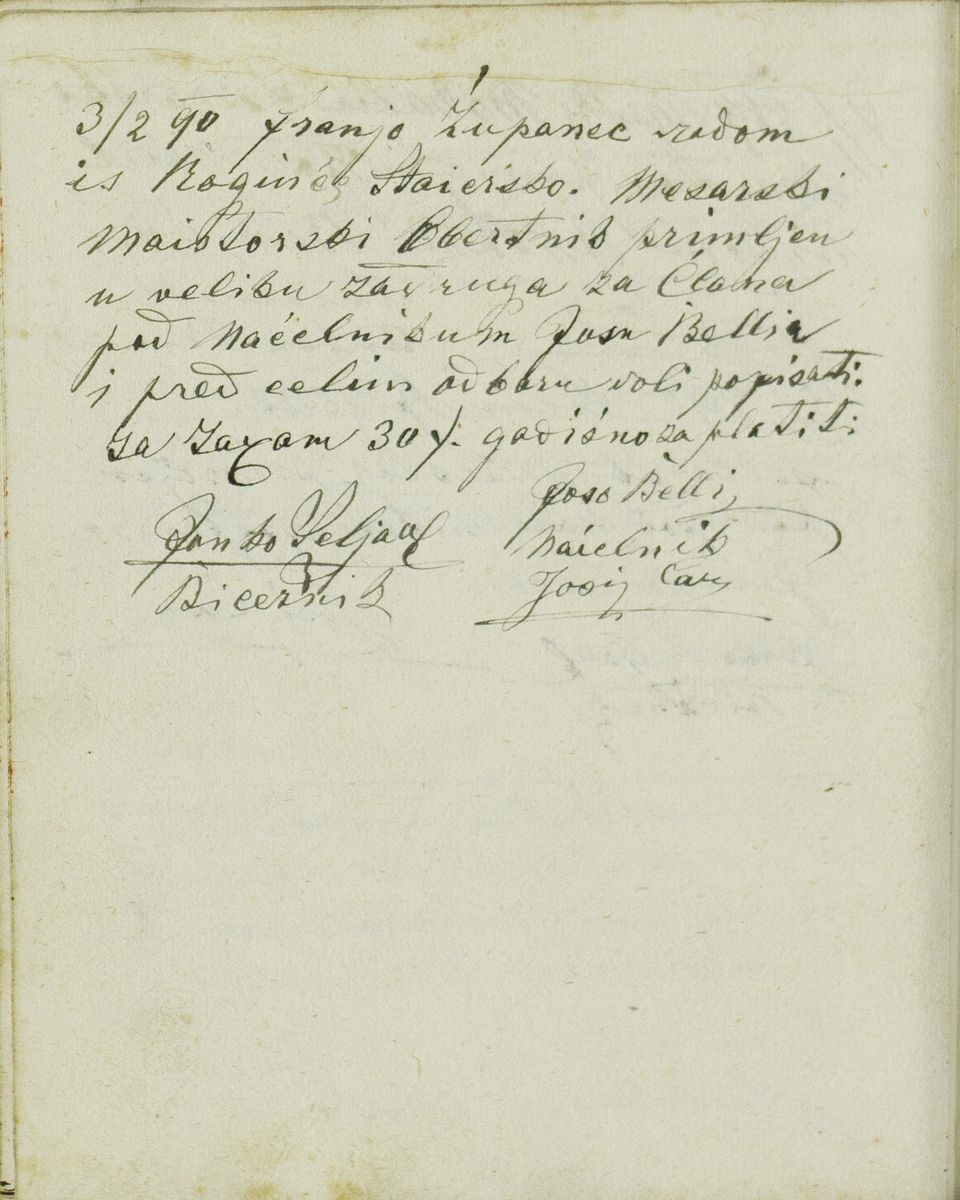 3/2 90 Franjo Župānec rodom
is Roginćę Štaiersko. Mesarski
Maistorski Obertnik primljen
u veliku zadruga za Člana
pod Naćelnikum Josu Bellia
i pred celim odboru doli popisati.
za Zaxam 30 f. godiśno za platiti
Joso Belli
Janko Seljan
Naćelnik
Bicežnik
Josip Car